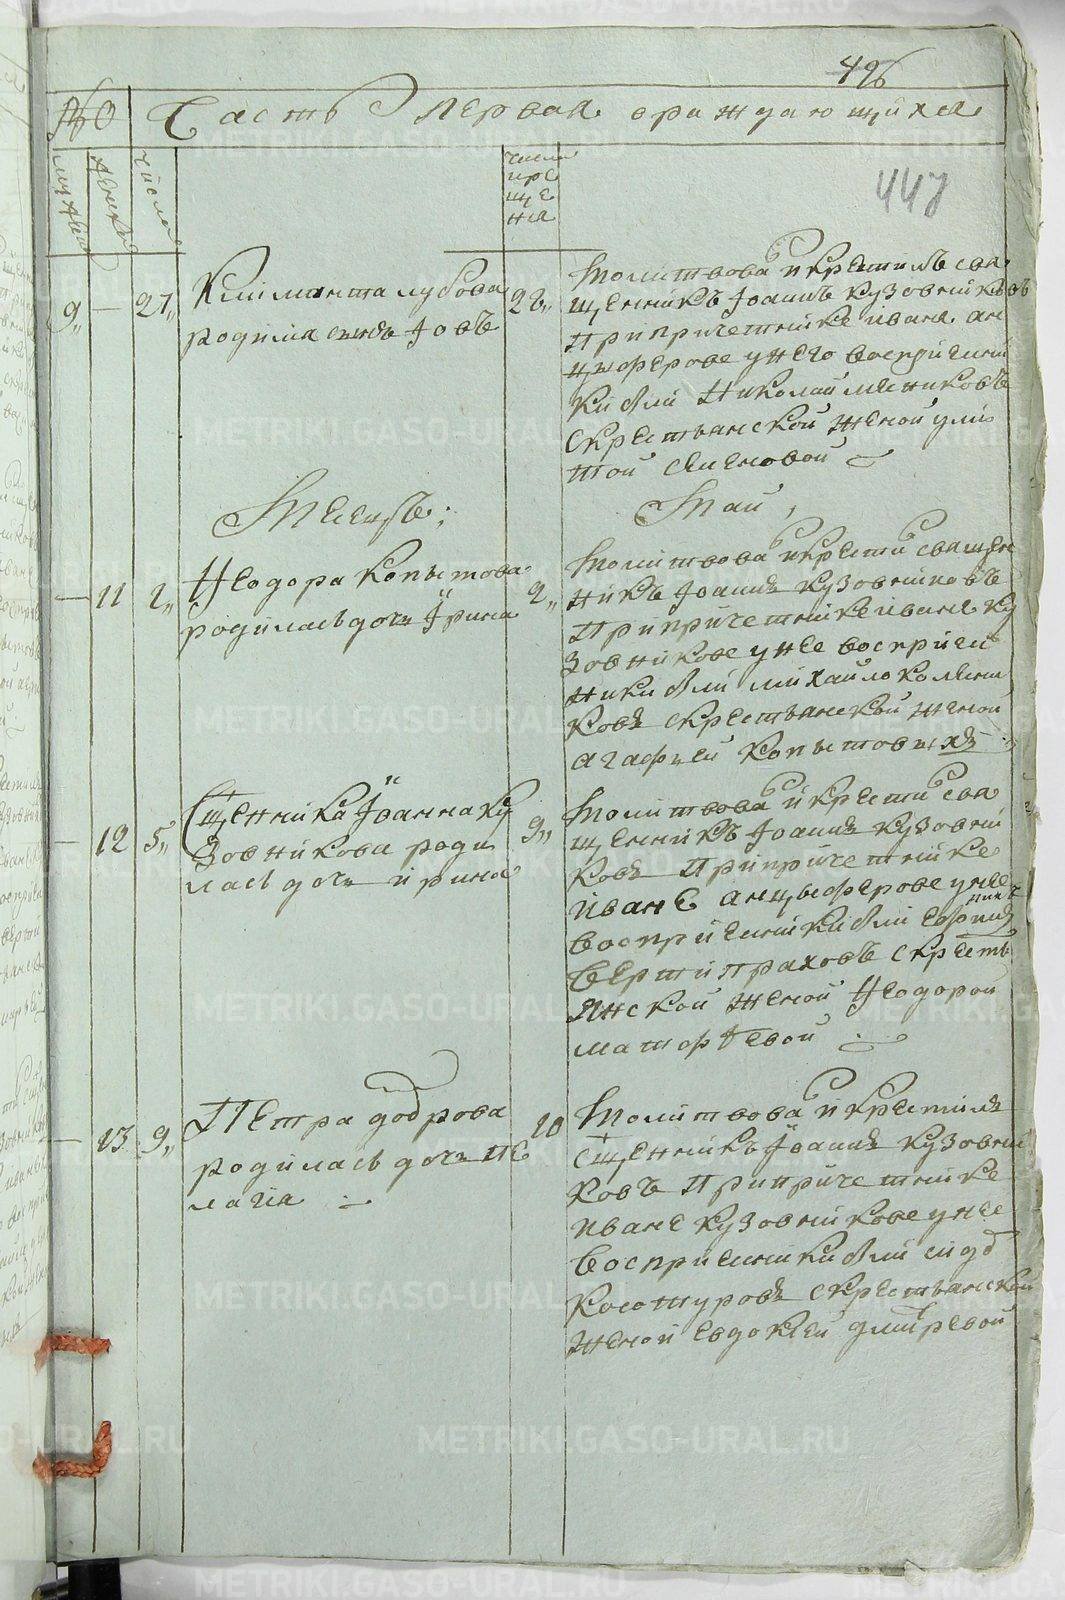 496
Часть первая ораждающихся
447
мужеск
женска
числа
числа
кре
ще
ния
9 27
Климинта лубова
родился сынъ Iовъ
28
молитвова и крестилъ свя
щенникъ Iоаннъ кузовниковъ
при причетнике иване ан
цыферове у него восприемни
ки были Николаи меншиковъ
с крестьянской женой ули
той семеновой
Месецъ;
Маи,
11 2
Ѳеодора копытова
родилась дочь Iрина
2
молитвова и крести священ
никъ Iоаннъ кузовниковъ
при причетнике иване ку
зовникове у нее восприем
ники были михаило
ковъ с крестьянской женой
агафьей копытовыхъ
12 5
Сщенника Iоанна ку
зовникова роди
лась дочь ирина
9
молитвова и крести свя
щенникъ Iоаннъ кузовни
ковъ при причетнике
иване анцыферове у нее
восприемники были
вертипраховъ с кресть
янской женой Ѳеодорой
матофѣевой
13 9
Петра додрова
родилась дочь пе
лагия
10
молитвова и крестилъ
сщенникъ Iоаннъ кузовни
ковъ при причетнике
иване кузовникове у нее
восприемники были
косотуровъ с крестьянской
женой евдокией дмитревой
METRIKI.GASO-URAL.RU